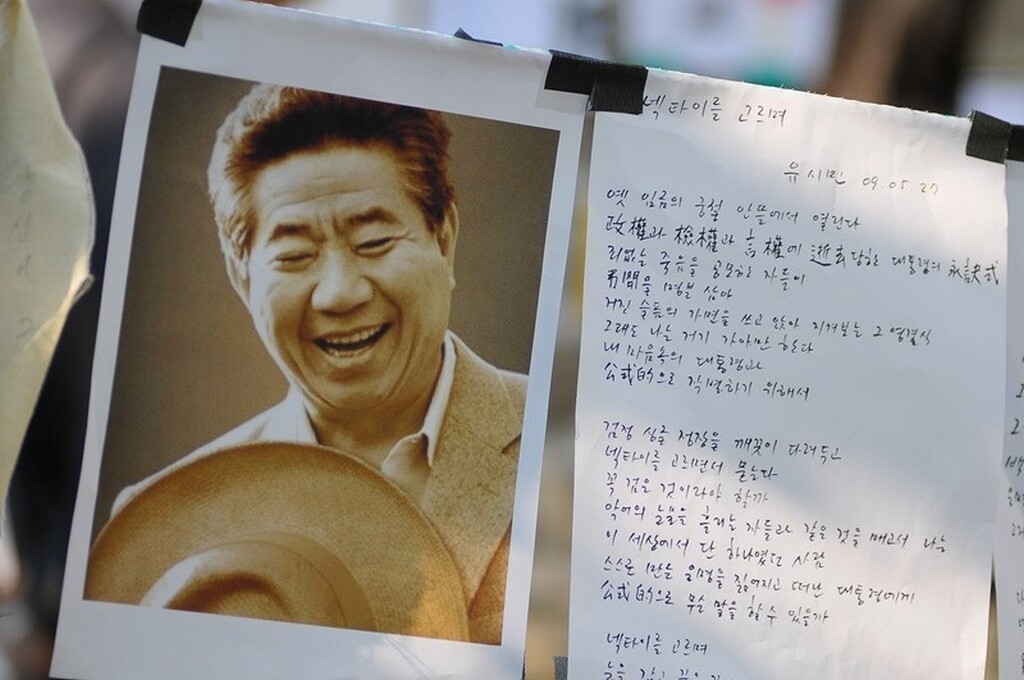 넥타이를 고르며
유시민 09.05.27
옛 임금의 궁궐 안뜰에서 열린다
政權과 檢權과 言權에 逝去당한 대통령의 永訣式
죄없는 죽음을 공모한 자들이
弔問을 명분 삼아
거진 슬픔의 가면을 쓰고 앉아 지켜보는 그 영결식
그래도 나는 거기 가야만 한다
내 마음속의 대통령과
公式的으로 작별하기 위해서
검정 싱글 정장을 깨끗이 다려두고
넥타이를 고르면서 묻는다
꼭 검은 것이라야 할까
악어의 눈물을 흘리는 자들과 같은 것을 매고서 나는
이 세상에서 단 하나였던 사람
스스로 만든 운명을 짊어지고 떠난 대통령에게
公式的으로 무슨 말을 할 수 있을까
넥타이를 고르며
눈을 감고